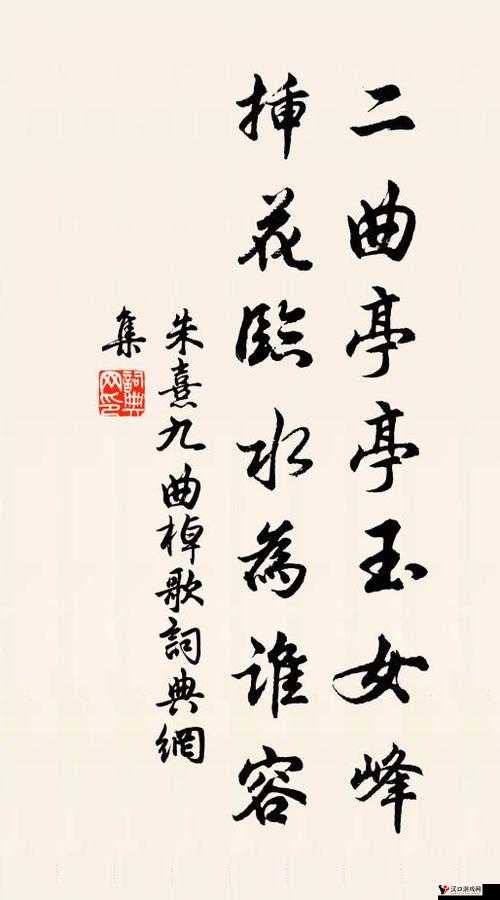 二曲亭亭玉女峰
挿花臨水為誰容
朱熹九曲棹歌詞典網
集
詞典網印
汉口游戏网